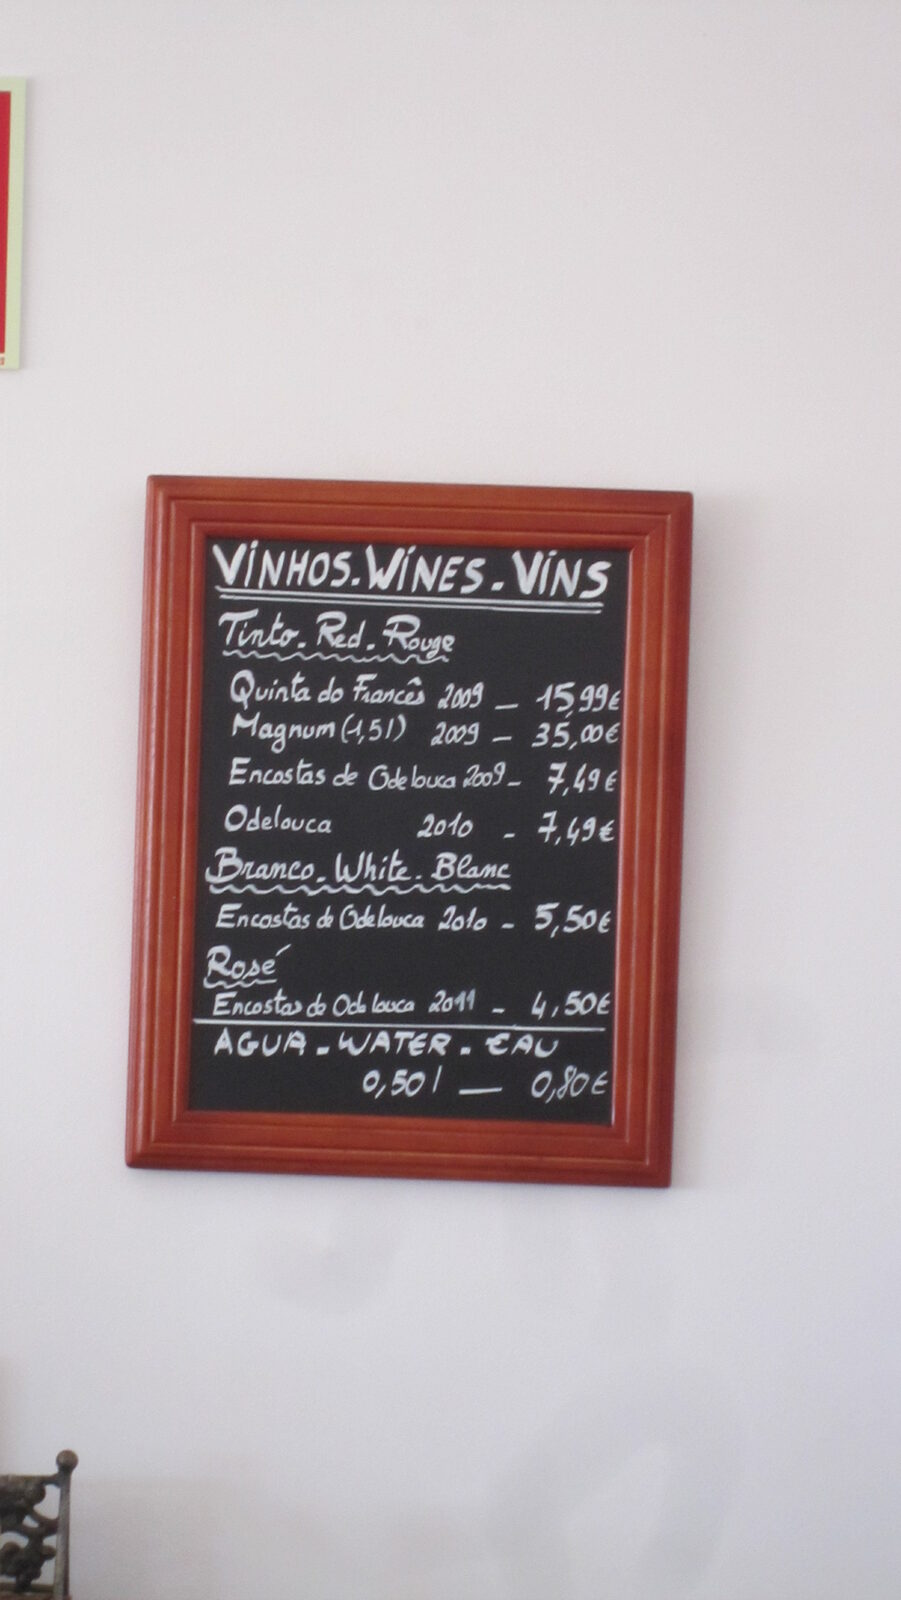 VINHOS. WINES. VINS
Tinto. Red. Rouge
Quinta do Francês 2009 — 15,99€
Magnum (1,5l) 2009 — 35,00€
Encostas de Odelouca 2009 - 7,49€
Odelouca 2010 - 7,49€
Branco. White. Blanc
Encostas de Odelouca 2010 - 5,50€
Rosé
Encostas de Odelouca 2011 - 4,50€
AGUA. WATER. EAU
0,50l — 0,80€